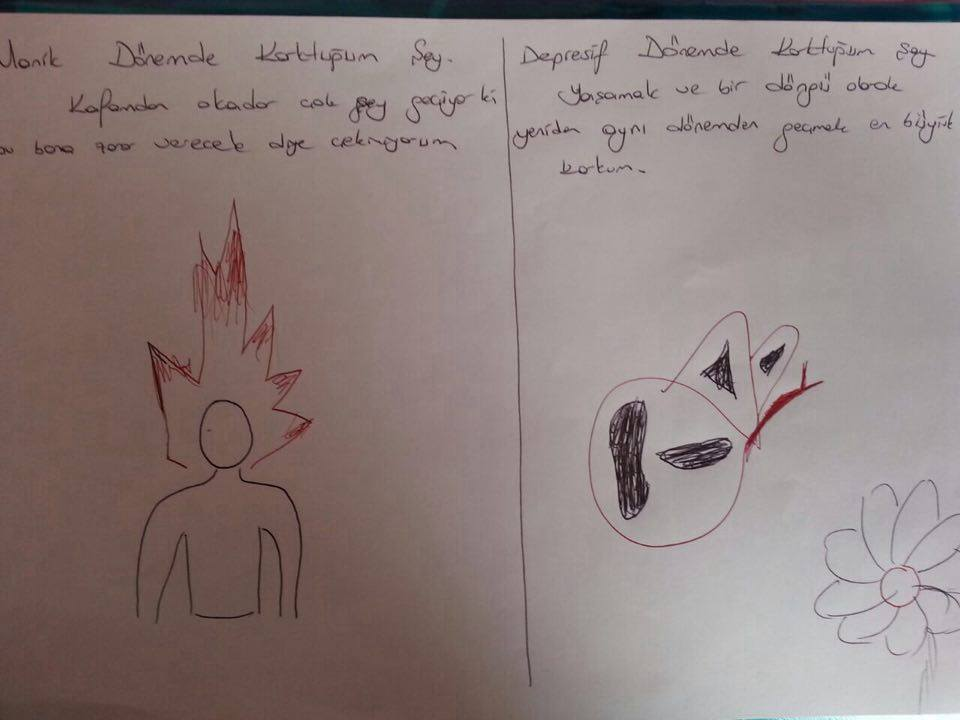 Manik Dönemde Korktuğum Şey.
Kafamdan okadar çok şey geçiyor ki
bu bana zarar verecek diye çekiniyorum
Depresif Dönemde Korktuğum Şey
Yaşamak ve bir döngü olarak
yeniden aynı dönemden geçmek en büyük
korkum.